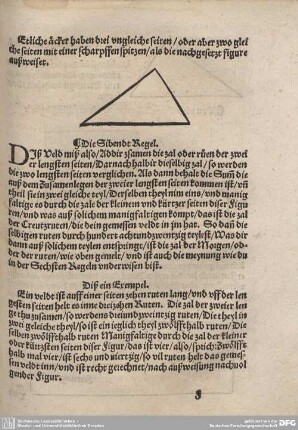 Etliche äcker haben drei ungleiche seiten / oder aber zwo glei
che seiten mit einer scharpffen spitzen / als die nachgesetzt figure
außweiset.
¶ Die Sibendt Regel.
DIß Veld miß also / Addir zsamen die zal oder rüen der zwei
er lengsten seiten / Darnach halbir dieselbig zal / so werden
die zwo lengsten seiten verglichen. Als dann behalt die Sum̃ die
auß dem zusamenlegen der zweier lengsten seiten kommen ist / vn̄
theil sie in zwei gleiche teyl / Derselben teylen eins / nim / vnd manig
faltige es durch die zale der kleinern vnd kürtzer seiten diser Figu
ren / vnd was auß solichem manigfaltigen kompt / das ist die zal
der Creutzruten / die dein gemessen veldt in jm hat. So dañ die
selbigen ruten durch hundert achtundzwentzig teylest / Was dir
dann auß solichem teylen entspringe / ist die zal der Morgen / od=
der der ruten / wie oben gemelt / vnd ist auch die meynung wie du
in der Sechsten Regeln vnderwisen bist.
Diß ein Exempel.
Ein veldt ist auff einer seiten zehen ruten lang / vnd vff der len
gesten seiten helt es inne dreizehen Ruten. Die zal der zweier len
ge thu zusamen / so werdens dreiundzweintzig ruten / Die theyl in
zwei gleiche theyl / so ist ein iegklich theyl zwölffthalb ruten / Die
selben zwölffthalb ruten Manigfaltige durch die zal der kleiner
oder kürtzsten seiten diser Figur / das ist vier / also / sprich: Zwölfft
halb mal vier / ist sechs vnd viertzig / so vil ruten helt das gemes=
sen veldt inn / vnd ist recht gerechnet / nach außweisung nachuol
gender Figur.